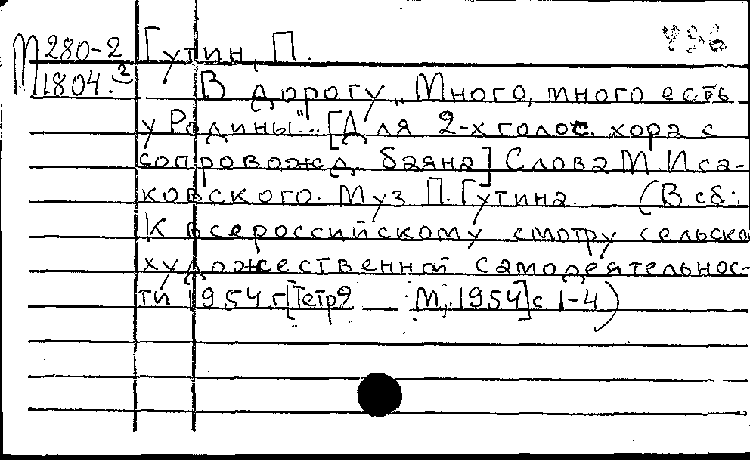 М 280-2 Гутин, П. 796
1804.² В дорогу „Много, много есть
у Родины"... [Для 2-х голос. хора с
сопровожд. баяна] Слова М. Иса-
ковского. Муз П. Гутина (В сб:
К всероссийскому смотру сельско
художественной самодеятельнос-
ти 1954 г [Тетр 2 __ М, 1954] с 1-4)